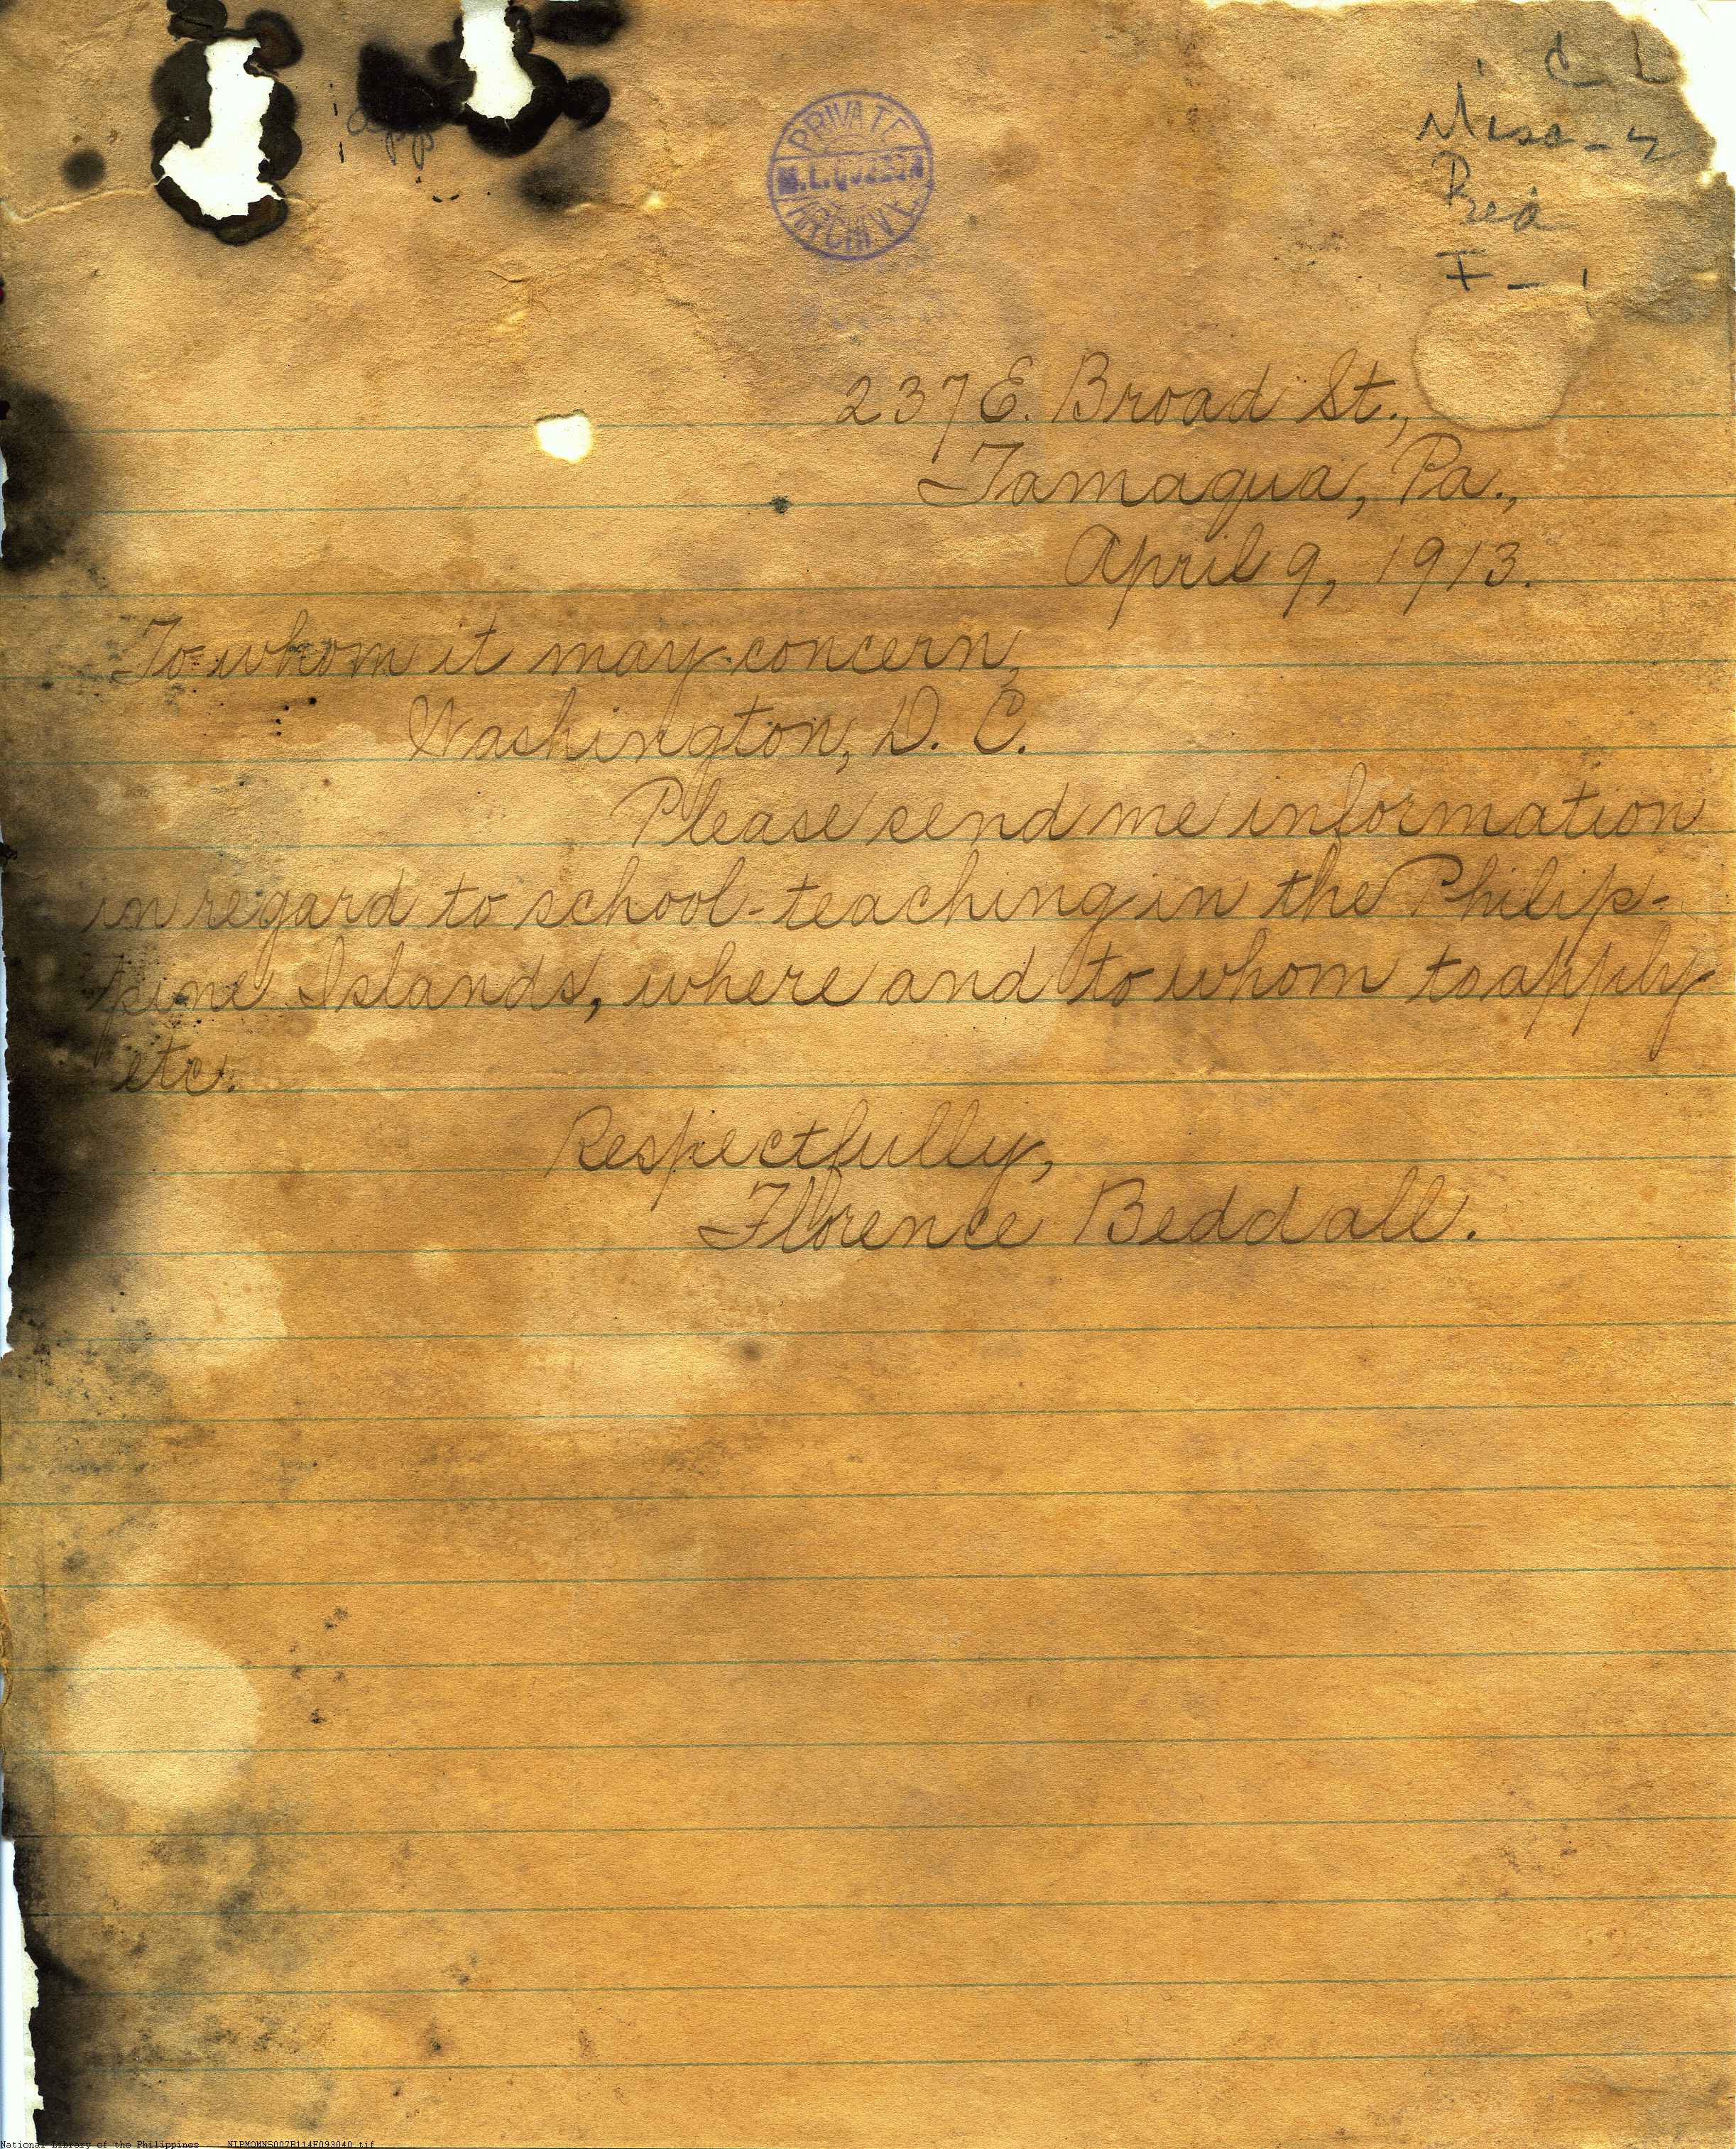 C
Misc-4
F-1
PRIVATE
M.L. QUEZON
ARCHIVE
237 E. Broad St.,
Tamaqua, Pa.,
April 9, 1913.
To whom it may concern,
Washington, D. C.
Please send me information
in regard to school-teaching in the Philip-
pine Islands, where and to whom to apply
etc.
Respectfully,
Florence Beddall.
National Library of the Philippines NLPMQMNS007B114F093040.tif